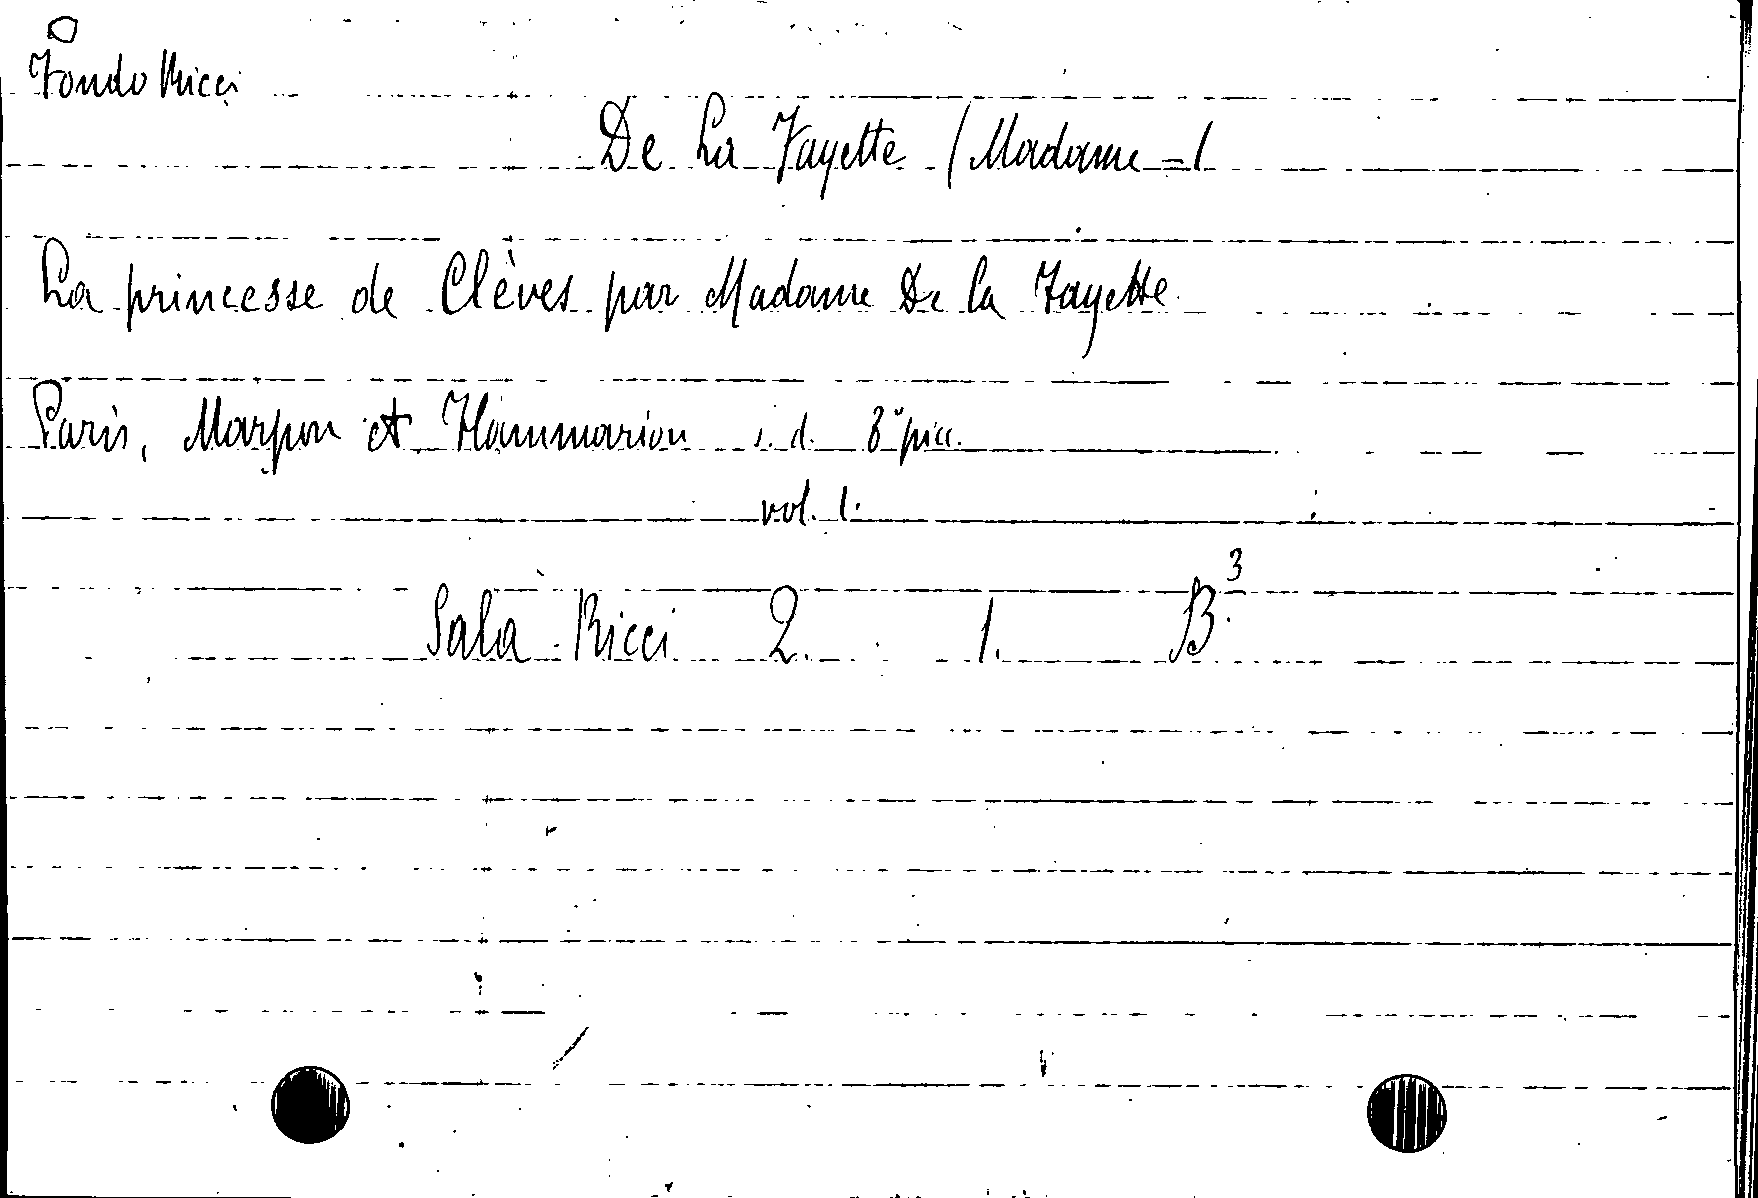 Fondo Ricci
De La Fayette (Madame =)
La princesse de Clèves par Madame De la Fayette
Paris, Marpon et Flammarion s. d. 8° picc.
vol. 1.
Sala Ricci 2. 1. B.³